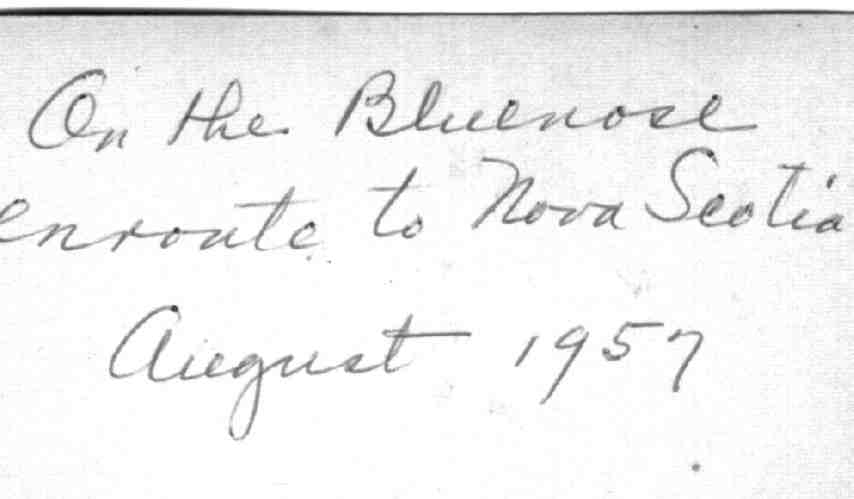 On the Bluenose
enroute to Nova Scotia
August 1957